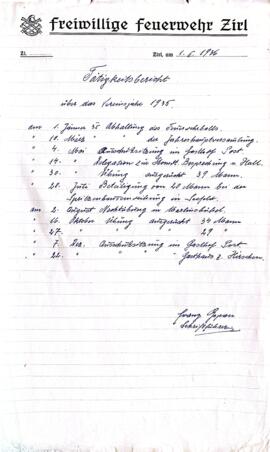 Freiwillige Feuerwehr Zirl
Zl. Zirl, am 1.1. 1936
Tätigkeitsbericht
über das Vereinsjahr 1935.
am 1. Jänner 35 Abhaltung des Feuerwehrballes.
" 10. März " der Jahreshauptversammlung.
" 4. Mai Ausschußsitzung im Gasthof Post
" 14. " Delegation zur Besprechung n. Hall.
" 30. " Übung ausgerückt 39 Mann.
" 28. Juli Beteiligung von 20 Mann bei der
in Seefeld.
am 2. August Nachtübung in Martinsbühel.
" 16. Oktober Übung ausgerückt 34 Mann
" 27. " " " 29 "
" 7. Dez. Ausschußsitzung im Gasthof Post
" 22. " Gasthaus z. Hirschen.
Franz
Schriftführer